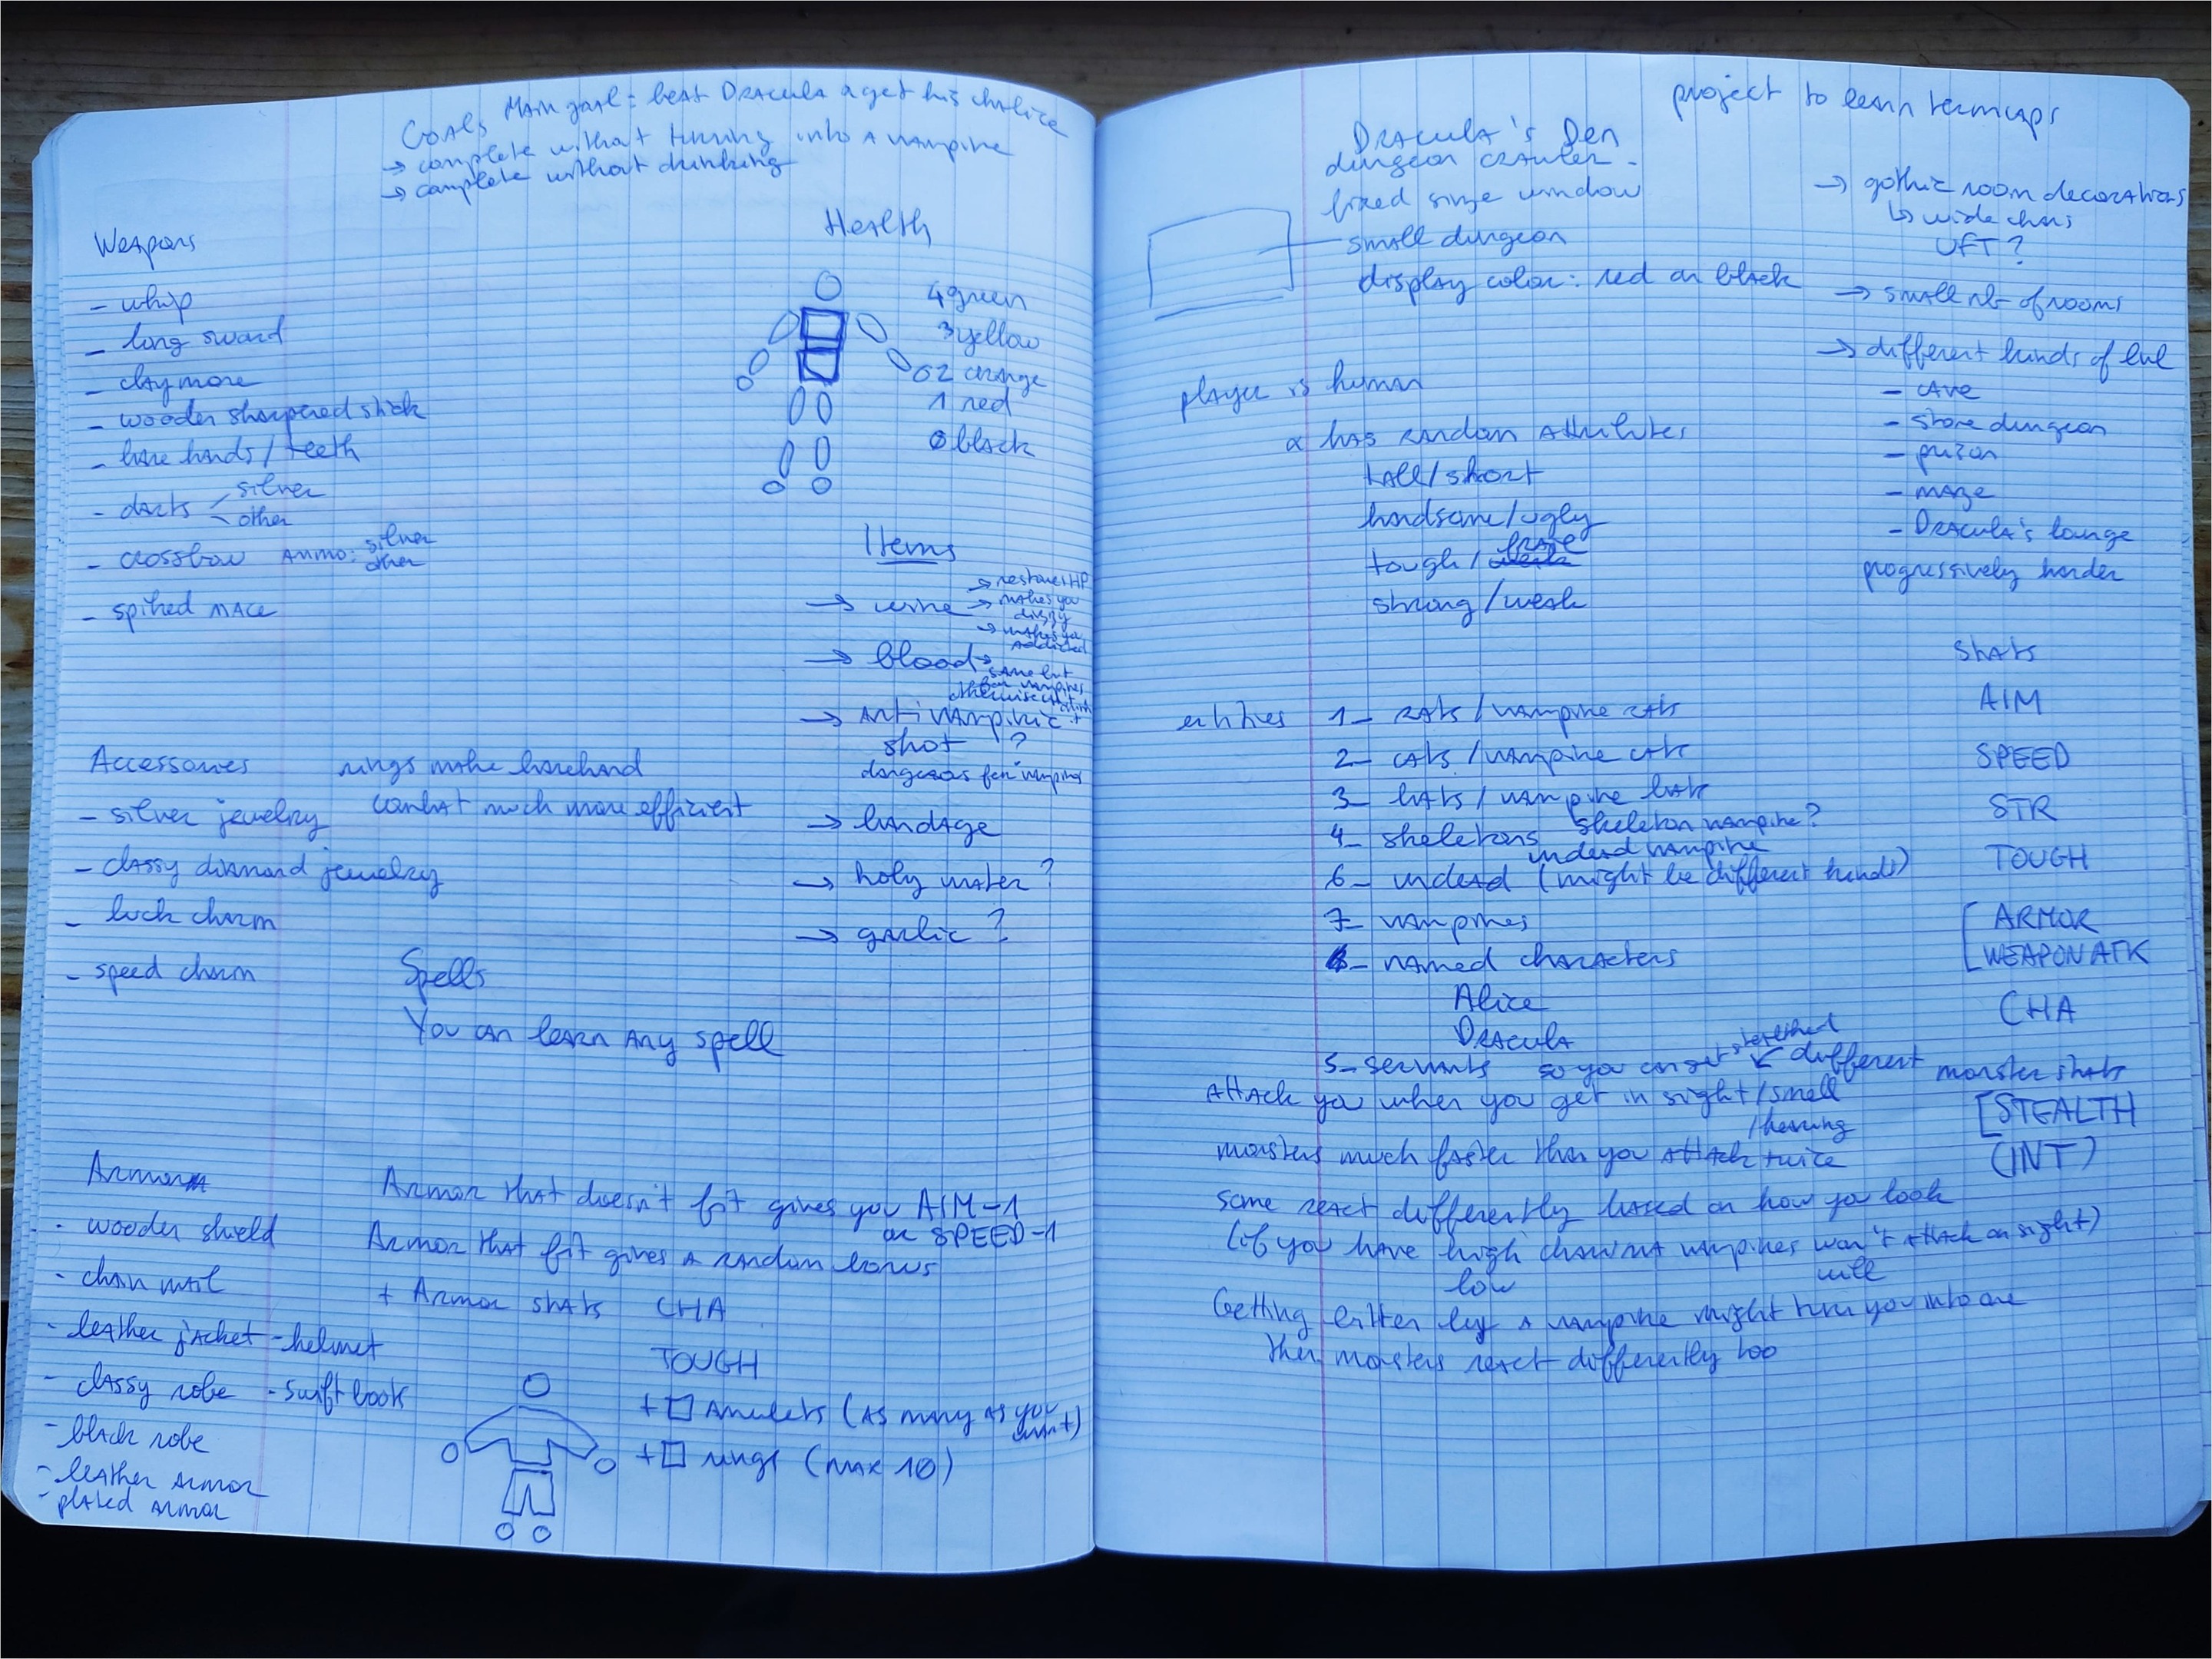 Goals Main goal: beat Dracula & get his chalice
→ complete without turning into a vampire
→ complete without drinking
Weapons
- whip
- long sword
- claymore
- wooden sharpened stick
- bare hands/teeth
- darts silver
other
- crossbow Ammo: silver
other
- spiked mace
Health
4 green
3 yellow
2 orange
1 red
0 black
Items
→ wine → restores HP
→ makes you
dizzy
→ makes you
addicted
→ blood → same but
for vampires
otherwise
→ Anti vampiric
shot ?
dangerous for vampires
→ bandage
→ holy water ?
→ garlic ?
Accessories
- silver jewelry
- classy diamond jewelry
- luck charm
- speed charm
rings make barehand
combat much more efficient
Spells
You can learn any spell
Armor
- wooden shield
- chain mail
- leather jacket - helmet
- classy robe - swift boots
- black robe
- leather armor
- plated armor
Armor that doesn't fit gives you AIM-1
or SPEED-1
Armor that fit gives a random bonus
+ Armor stats CHA
TOUGH
+ Amulets (as many as you
want)
+ rings (max 10)
project to learn termcaps
Dracula's Den
dungeon crawler
fixed size window
small dungeon
display color: red on black
→ gothic room decorations
↳ wide chars
UFT ?
→ small nb of rooms
→ different kinds of lvl
- cave
- stone dungeon
- prison
- maze
- Dracula's lounge
progressively harder
player is human
& has random attributes
tall/short
handsome/ugly
tough/weak frail
strong/weak
entities 1- rats/vampire rats
2- cats/vampire cats
3- bats/vampire bats
4- skeletons skeleton vampire?
undead vampire
6- undead (might be different kinds)
7- vampires
8- named characters
Alice
Dracula
5- servants so you can get
Stats
AIM
SPEED
STR
TOUGH
[ARMOR
WEAPON ATK
CHA
different monster stats
[STEALTH
(INT)
Attack you when you get in sight/smell
/hearing
monsters much faster than you attack twice
some react differently based on how you look
(if you have high charisma vampires won't attack on sight)
low will
Getting bitten by a vampire might turn you into one
then monsters react differently too